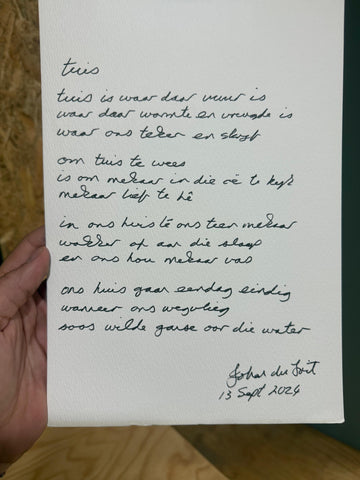 tuis
tuis is waar daar vuur is
waar daar warmte en vreugde is
waar ons teken en skryf
om tuis te wees
is om mekaar in die oë te kyk
mekaar lief te hê
in ons huis lê ons teen mekaar
wakker of aan die slaap
en ons hou mekaar vas
ons huis gaan eendag eindig
wanneer ons wegvlieg
soos wilde ganse oor die water
Johan du Toit
13 Sept 2024